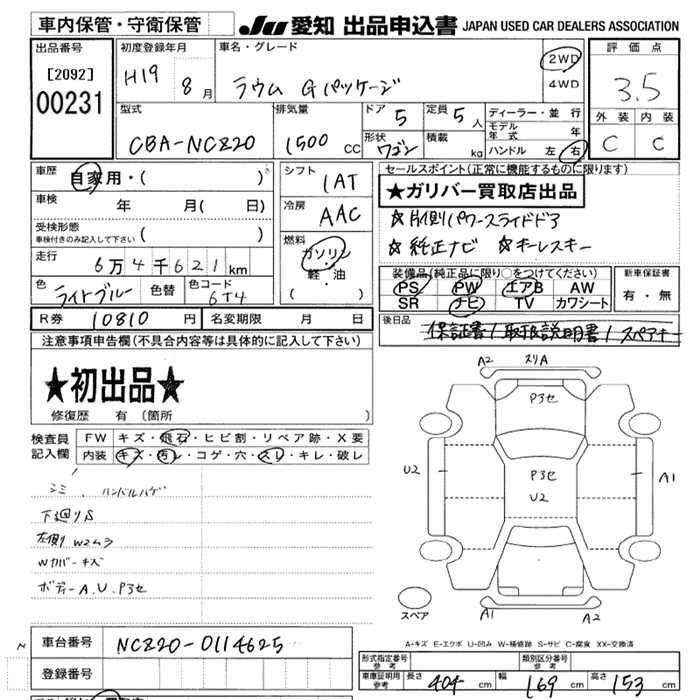 車内保管・守衛保管
JU 愛知 出品申込書 JAPAN USED CAR DEALERS ASSOCIATION
出品番号
[2092]
00231
初度登録年月
H19 8月
車名・グレード
ラウム Gパッケージ
2WD
4WD
評価点
3.5
外装 内装
C C
型式
CBA-NCZ20
排気量
1500 CC
ドア 5
定員 5人
形状 ワゴン
積載 kg
ディーラー・並行
モデル年式 年
ハンドル 左・右
車歴
自家用・( )
車検
年 月( 日)
受検形態
車検付きのみ記入して下さい ( )
走行
6万4千621km
色 ライトブルー 色替 色コード 6T4
シフト
IAT
冷房
AAC
燃料
ガソリン
軽・油
( )
セールスポイント(正常に機能するものに限ります)
★ガリバー買取店出品
☆片側パワースライドドア
☆純正ナビ ☆キーレスキー
装備品(純正品に限り○をつけてください)
PS PW エアB AW
SR ナビ TV カワシート
新車保証書
有・無
R券 10810円 名変期限 月 日
後日品 保証書/取扱説明書/スペアキー
注意事項申告欄(不具合内容等は具体的に記入して下さい)
★初出品★
修復歴 有 (箇所 )
検査員記入欄
FW キズ・飛石・ヒビ割・リペア跡・X要
内装 キズ・汚レ・コゲ・穴・スレ・キレ・破レ
シミ、ハンドルハゲ
下廻りS
左側りW2ムラ
Wカバーキズ
ボディーA.U.P3セ
A2 スリA
P3セ
U2 P3セ A1
U2
スペア A1 A2
A-キズ E-エクボ U-凹み W-補修跡 S-サビ C-腐食 XX-交換済
車台番号 NCZ20-0114625
登録番号
形式指定番号 参考
類別区分番号 参考
車庫証明用 参考 長さ 404 cm 幅 169 cm 高さ 153 cm